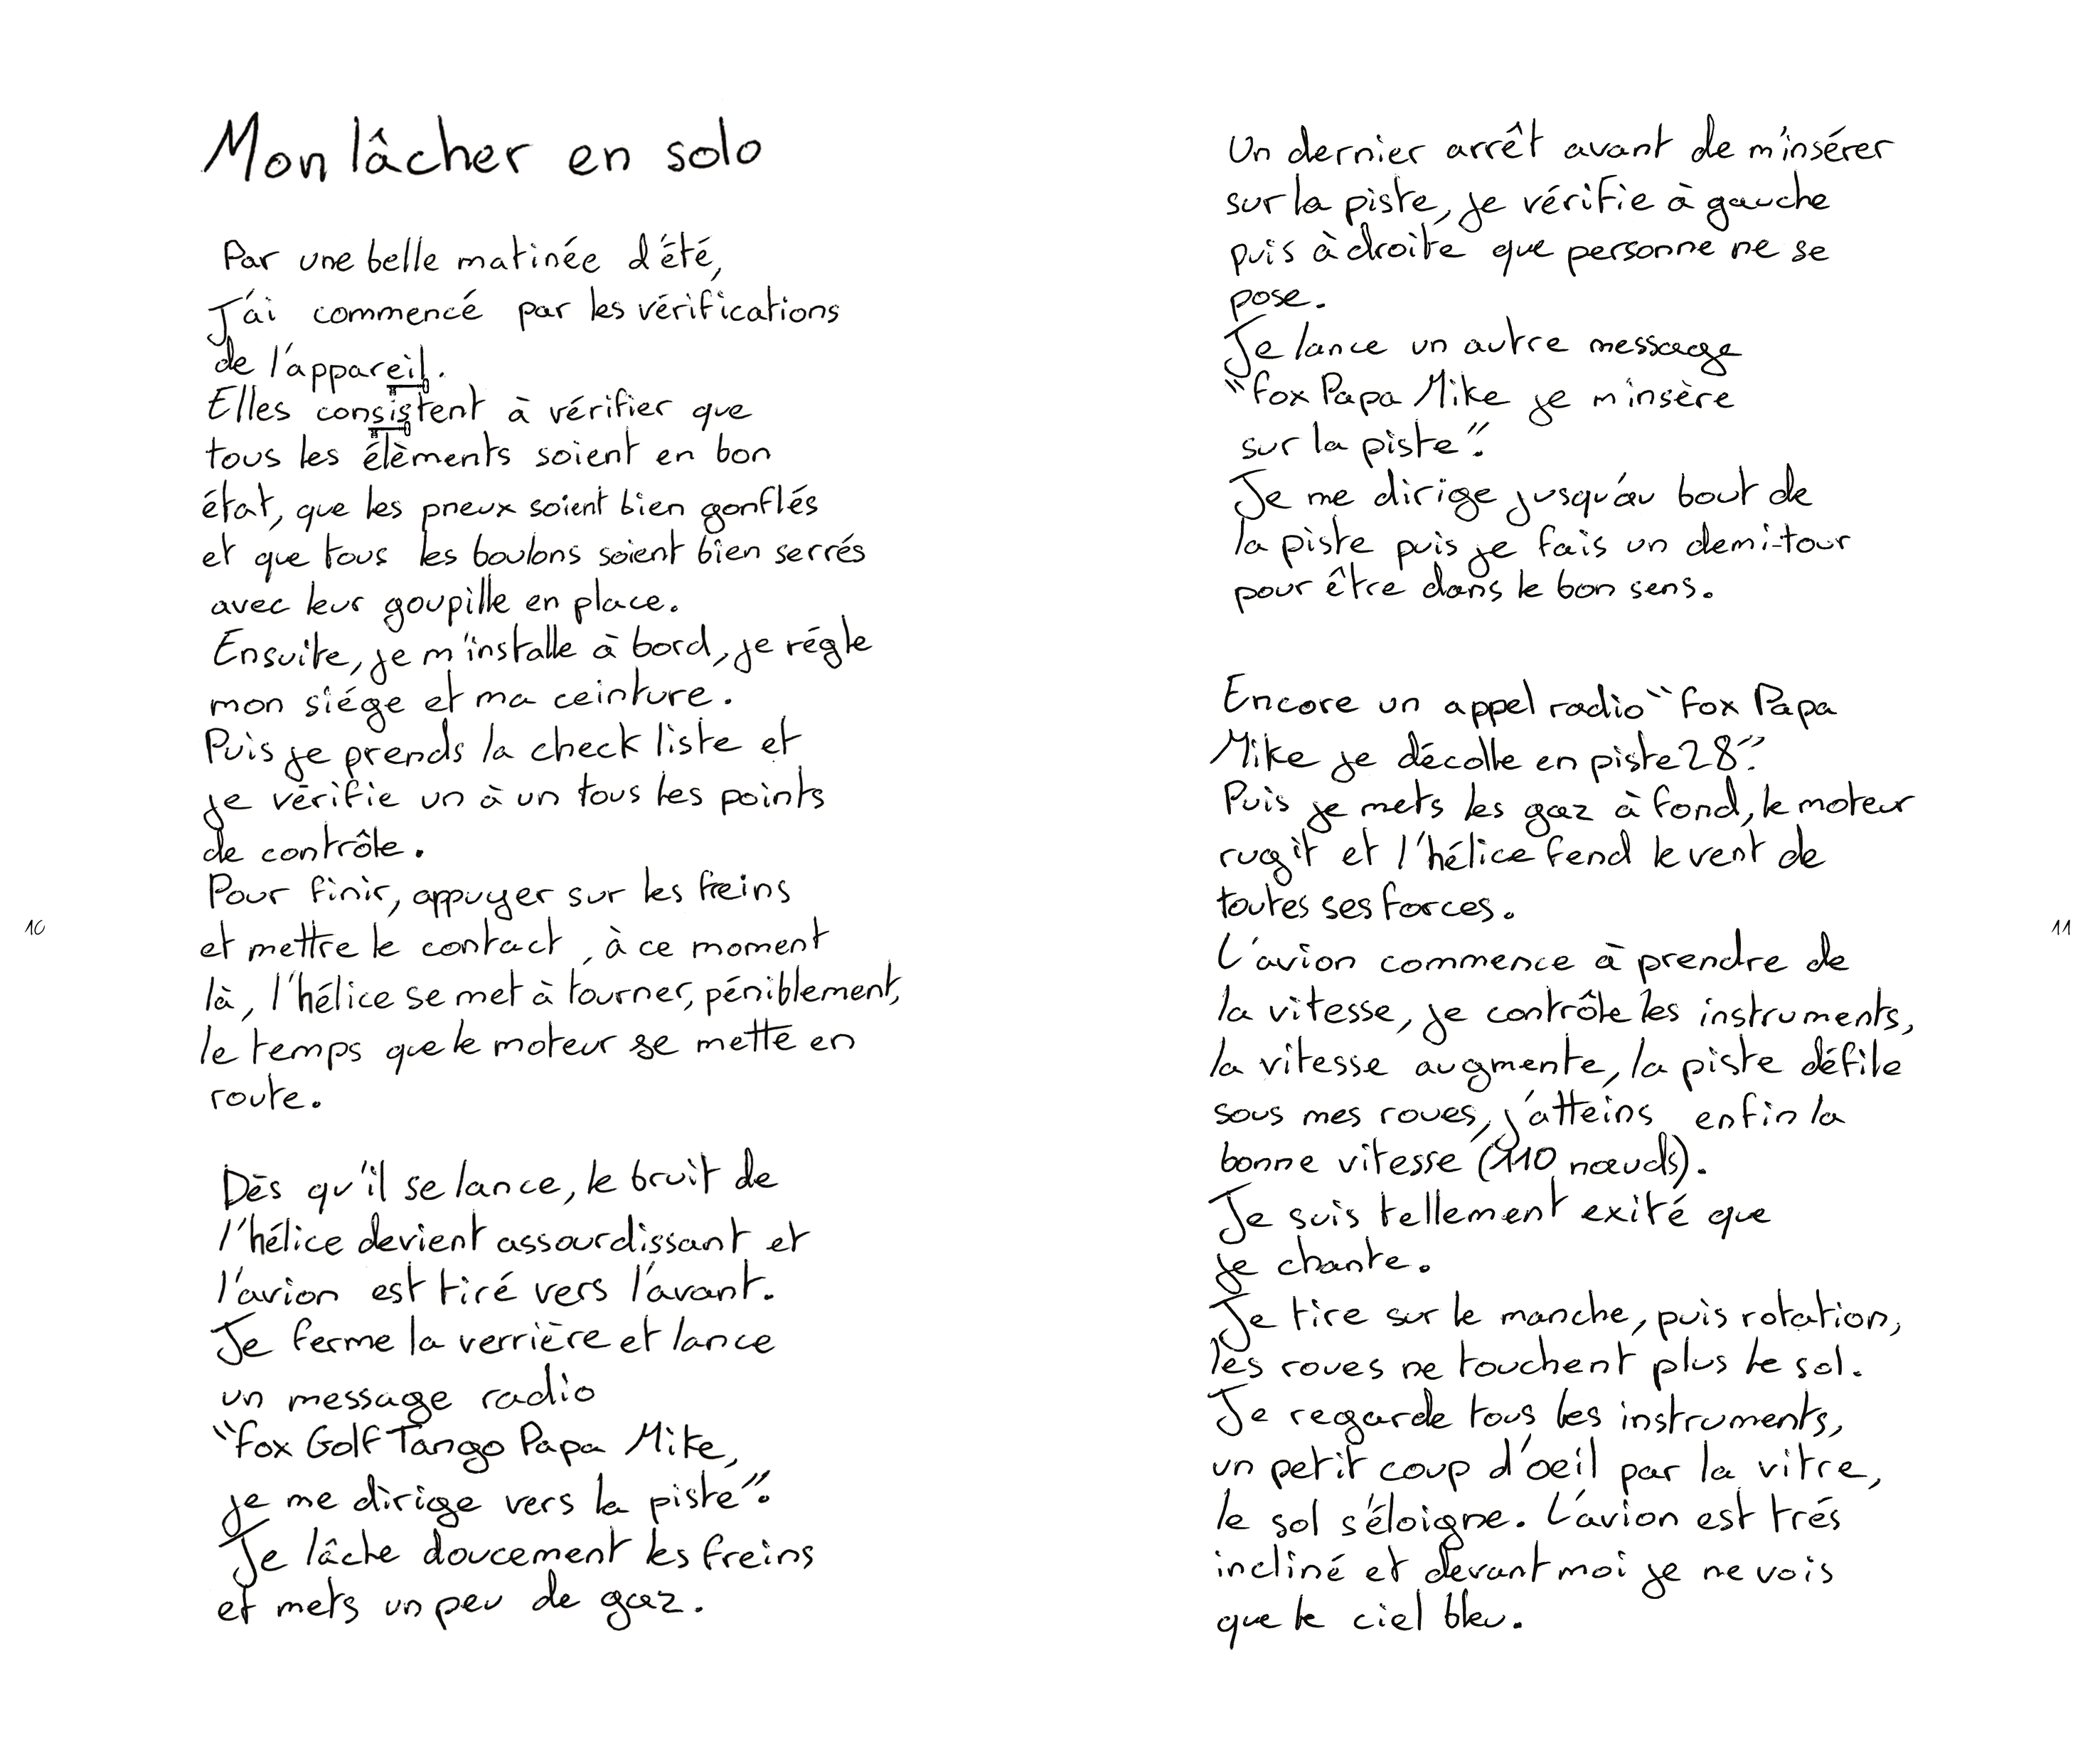 Mon lâcher en solo
Par une belle matinée d'été,
J'ai commencé par les vérifications
de l'appareil.
Elles consistent à vérifier que
tous les élèments soient en bon
état, que les pneux soient bien gonflés
et que tous les boulons soient bien serrés
avec leur goupille en place.
Ensuite, je m'installe à bord, je régle
mon siége et ma ceinture.
Puis je prends la check liste et
je vérifie un à un tous les points
de contrôle.
Pour finir, appuyer sur les freins
et mettre le contact, à ce moment
là, l'hélice se met à tourner, péniblement,
le temps que le moteur se mette en
route.
Dès qu'il se lance, le bruit de
l'hélice devient assourdissant et
l'avion est tiré vers l'avant.
Je ferme la verrière et lance
un message radio
"fox Golf Tango Papa Mike,
je me dirige vers la piste".
Je lâche doucement les freins
et mets un peu de gaz.
10
Un dernier arrêt avant de m'insérer
sur la piste, je vérifie à gauche
puis à droite que personne ne se
pose.
Je lance un autre message
"fox Papa Mike je m'insère
sur la piste".
Je me dirige jusqu'au bout de
la piste puis je fais un demi-tour
pour être dans le bon sens.
Encore un appel radio "fox Papa
Mike je décolle en piste 28".
Puis je mets les gaz à fond, le moteur
rugit et l'hélice fend le vent de
toutes ses forces.
L'avion commence à prendre de
la vitesse, je contrôle les instruments,
la vitesse augmente, la piste défile
sous mes roues, j'atteins enfin la
bonne vitesse (110 nœuds).
Je suis tellement exité que
je chante.
Je tire sur le manche, puis rotation,
les roues ne touchent plus le sol.
Je regarde tous les instruments,
un petit coup d'oeil par la vitre,
le sol s'éloigne. L'avion est trés
incliné et devant moi je ne vois
que le ciel bleu.
11